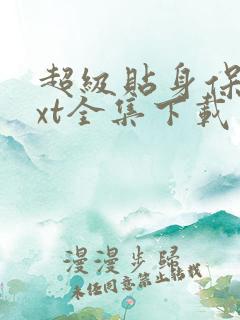 超級貼身保
xt全集下載
漫漫步歸
未任同意禁止轉載